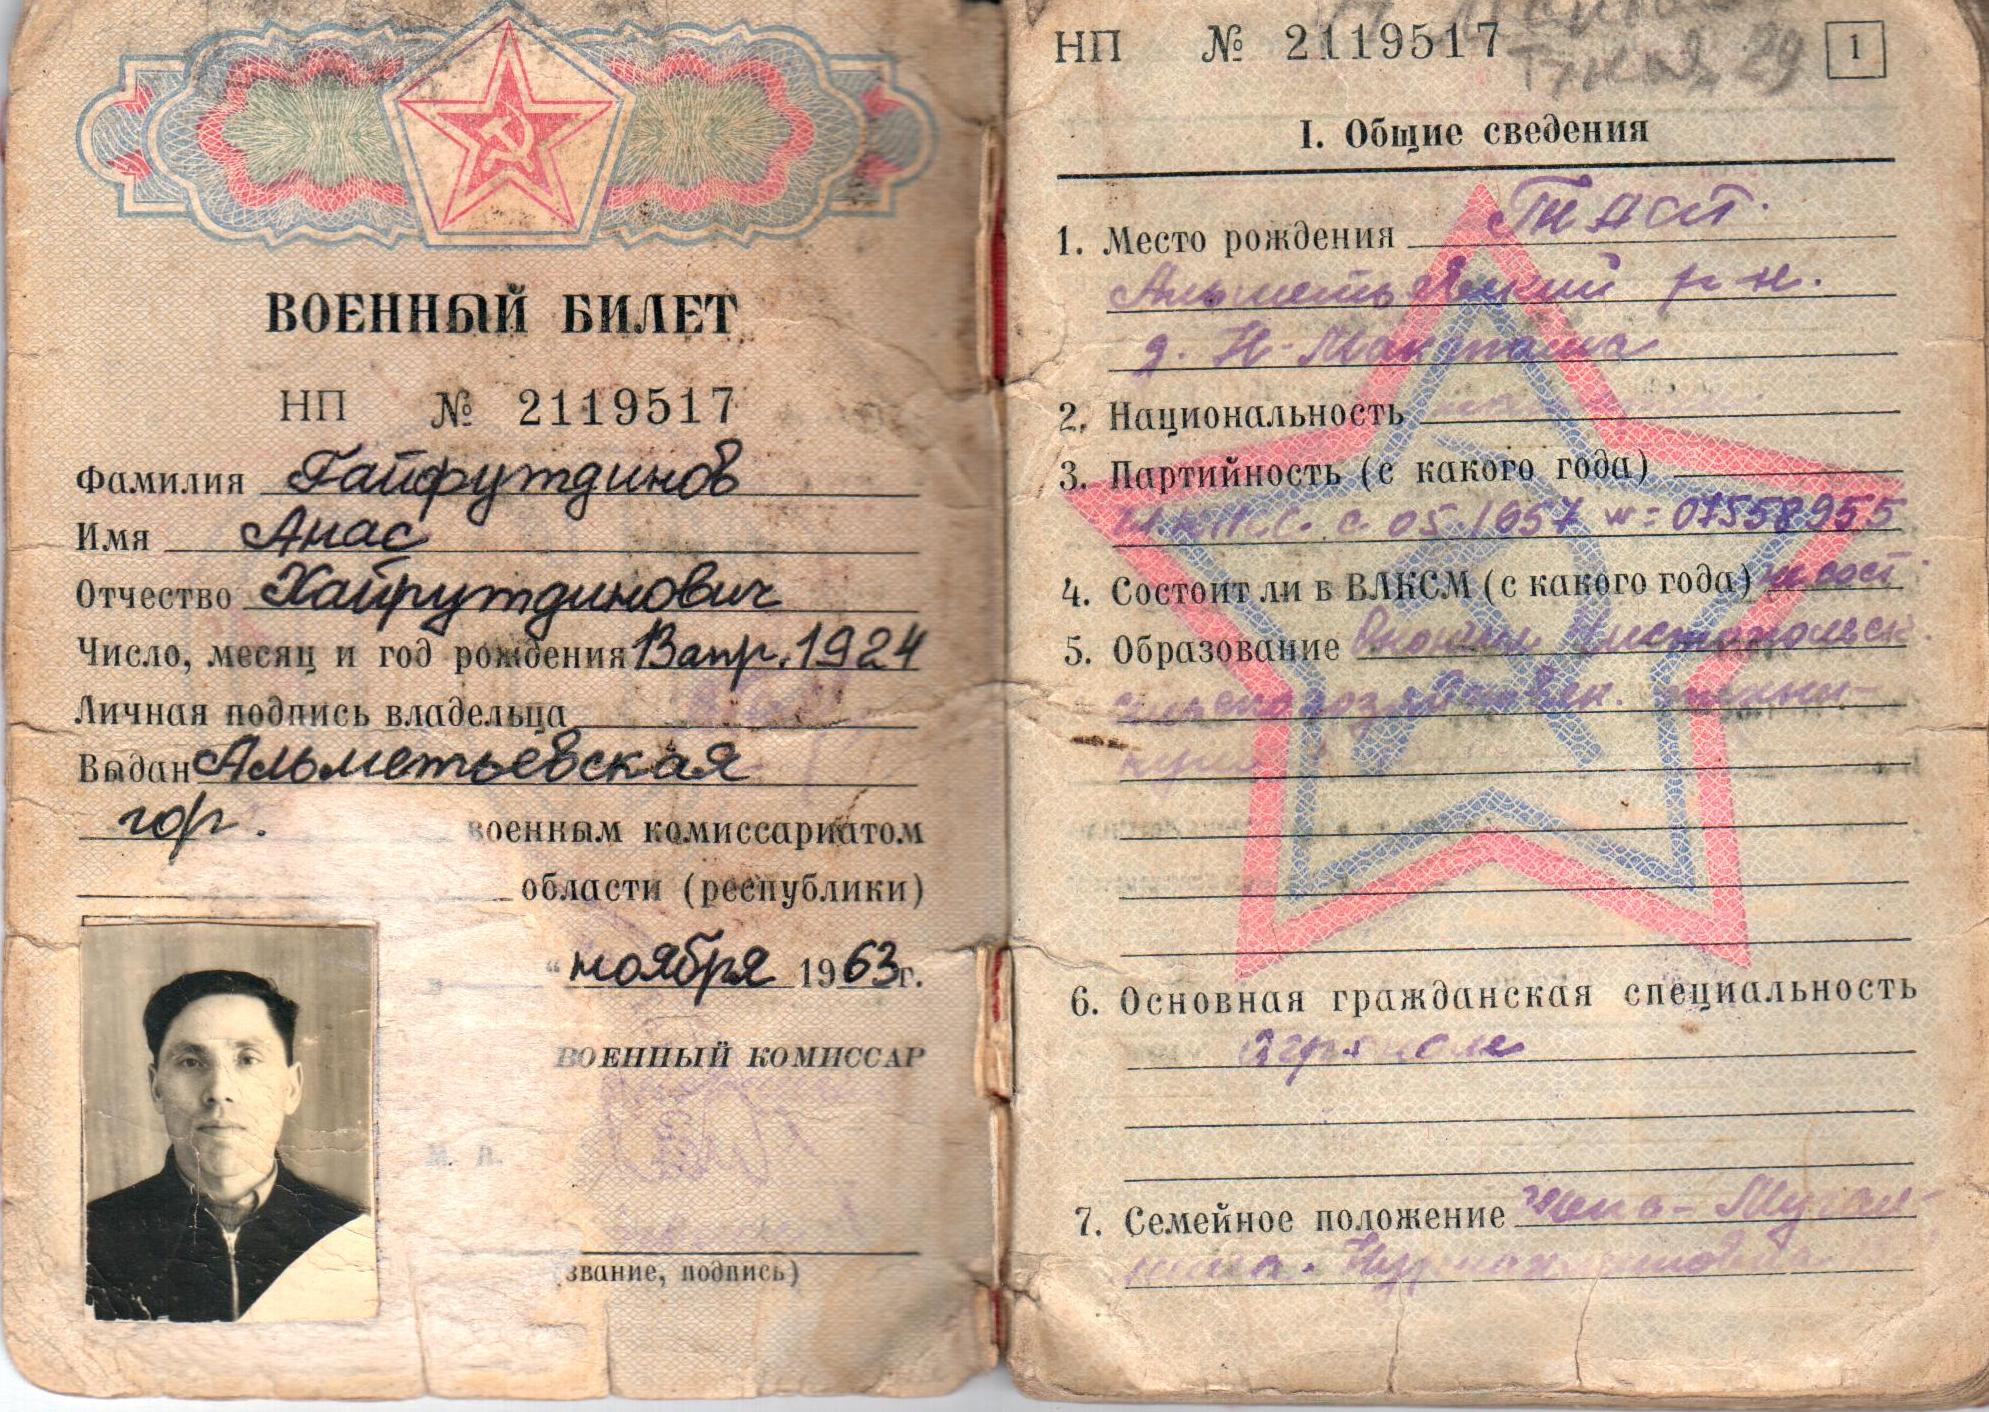 ВОЕННЫЙ БИЛЕТ
НП № 2119517
Фамилия Гайфутдинов
Имя Анас
Отчество Хайрутдинович
Число, месяц и год рождения 13 апр. 1924
Личная подпись владельца
Выдан Альметьевская
гор. военным комиссариатом
области (республики)
" ноября 1963г.
ВОЕННЫЙ КОМИССАР
М. П.
(звание, подпись)
НП № 2119517
29
1
I. Общие сведения
1. Место рождения ТАССР.
Альметьевский р-н.
д. Н-Мактама
2. Национальность
3. Партийность (с какого года)
чл КПСС. с 05.1957 №=07558955
4. Состоит ли в ВЛКСМ (с какого года) не сост.
5. Образование Окончил Чистопольск.
сельскохозяйствен. техни-
кум
6. Основная гражданская специальность
Агроном
7. Семейное положение Жена-